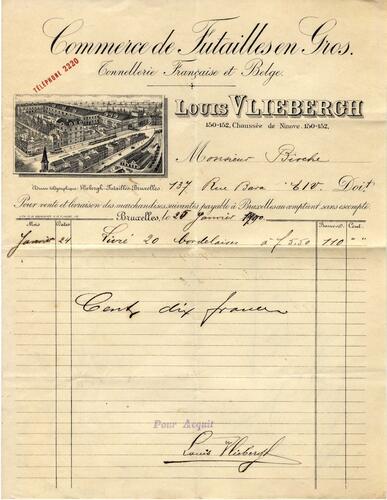 Commerce de Futailles en Gros.
Tonnellerie Française et Belge.
TÉLÉPHONE 2220
LOUIS VLIEBERGH
150-152, Chaussée de Ninove, 150-152,
Monsieur Bioche
Adresse télégraphique: Vliebergh-Futailles-Bruxelles
137 Rue Bara E/V Doit
Pour vente et livraison des marchandises suivantes payable à Bruxelles au comptant sans escompte
Bruxelles, le 25 Janvier
Mois Dates Francs Cent.
Janvier 24 Livré 20 bordelaises à f 5.50 110 " "
Cent dix francs
Pour Acquit
Louis Vliebergh